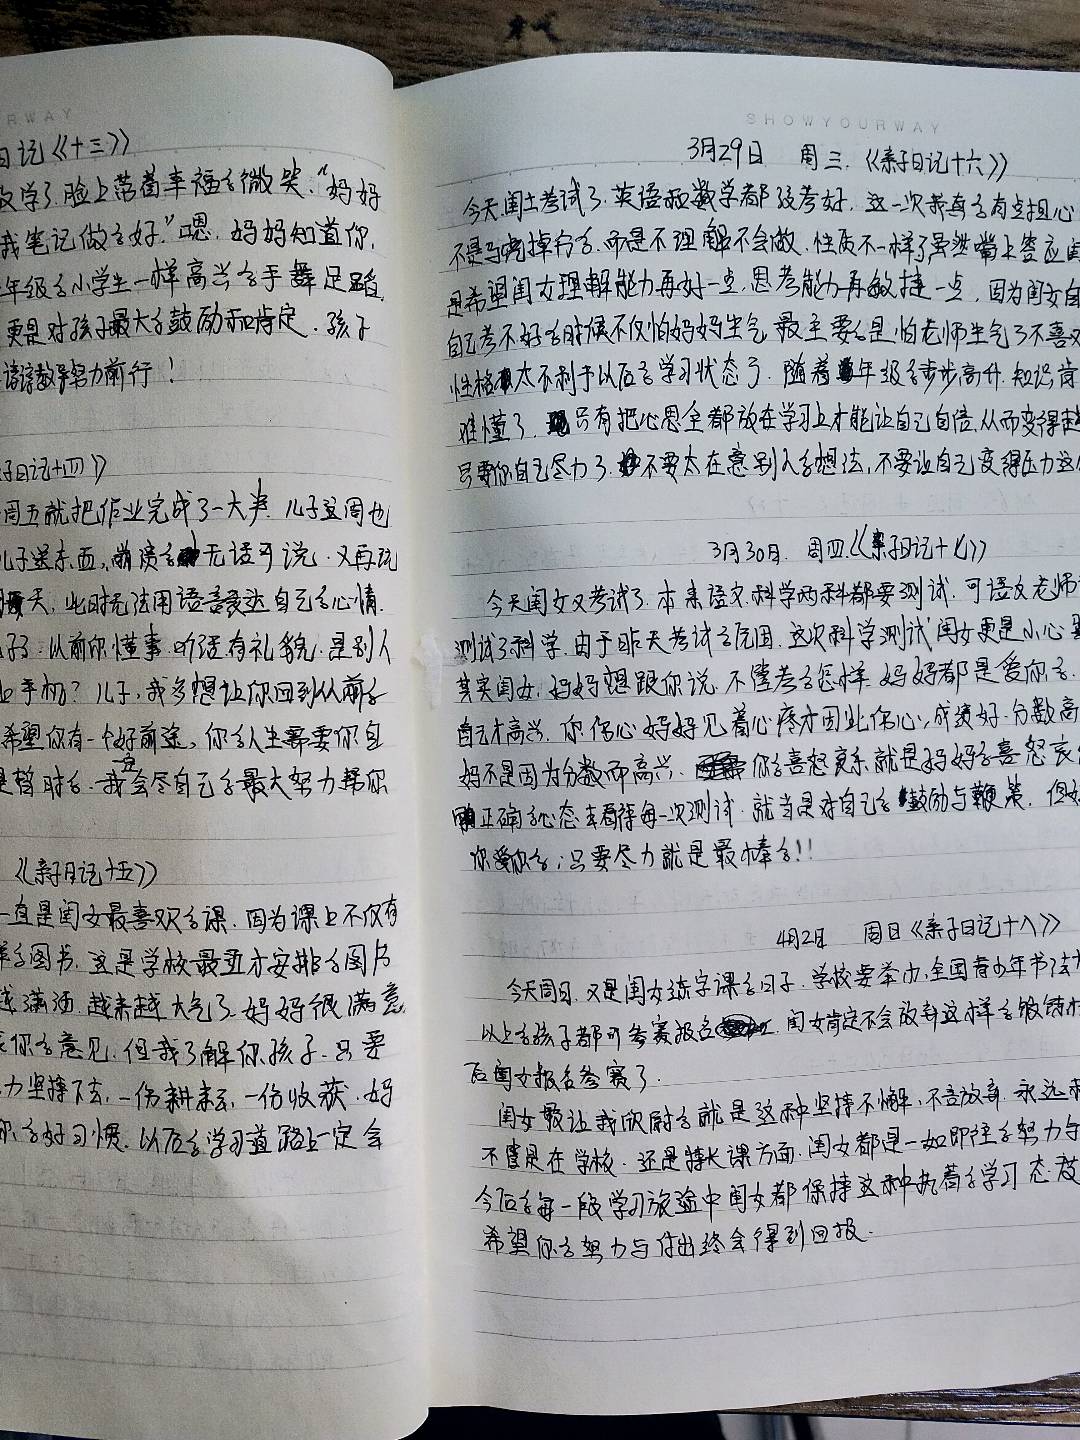 RWAY
日记《十三》》
放学了脸上带着幸福的微笑,“妈妈
我笔记做的好”嗯,妈妈知道你,
年级的小学生一样高兴的手舞足蹈,
更是对孩子最大的鼓励和肯定.孩子
谆谆教导努力前行!
子日记十四》
周五就把作业完成了一大半.儿子这周也
儿子送东西,崩溃的无话可说.又再玩
天,此时无法用语言表达自己的心情.
以前你懂事.听话.有礼貌.是别人
手机?儿子,我多想让你回到从前的
希望你有一个好前途,你的人生需要你自
是暂时的.我一定会尽自己的最大努力帮你
《亲子日记十五》》
一直是闺女最喜欢的课.因为课上不仅有
样的图书.这是学校最五才安排的图书
越潇洒.越来越大气了.妈妈很满意
你的意见.但我了解你孩子.只要
力坚持下去,一份耕耘,一份收获.妈
你的好习惯.以后的学习道路上一定会
SHOWYOURWAY
3月29日 周三.《亲子日记十六》》
今天闺女考试了.英语和数学都没考好.这一次我真的有点担心
不是马虎掉行的.而是不理解不会做.性质不一样了虽然嘴上答应
是希望闺女理解能力再好一点,思考能力再敏捷一点,因为闺女自
自己考不好的时候不仅怕妈妈生气最主要的是怕老师生气了不喜欢
性格太不利于以后的学习状态了.随着年级的步步高升.知识肯
难懂了.只有把心思全都放在学习上才能让自己自信,从而变得越
只要你自己尽力了.不要太在意别人的想法,不要让自己变得压力这
3月30日.周四《亲子日记十七》》
今天闺女又考试了.本来语文.科学两科都要测试.可语文老师
测试了科学.由于昨天考试的原因.这次科学测试闺女更是小心
其实闺女,妈妈想跟你说.不管考的怎样.妈妈都是爱你的.
自己才高兴.你伤心妈妈见着心疼才因此伤心,成绩好.分数高
妈不是因为分数而高兴.你的喜怒哀乐就是妈妈的喜怒哀
正确的心态去看待每一次测试.就当是对自己的鼓励与鞭策.但
你爱你的;只要尽力就是最棒的!!
4月2日 周日《亲子日记十八》》
今天周日.又是闺女练字课的日子.学校要举办,全国青少年书法
以上的孩子都可参赛报名.闺女肯定不会放弃这样的锻炼
后闺女报名参赛了.
闺女最让我欣慰的就是这种坚持不懈,不言放弃.永远
不管是在学校.还是特长课方面.闺女都是一如即往的努力与
今后的每一段学习旅途中闺女都保持这种执着的学习态度
希望你的努力与付出终会得到回报.